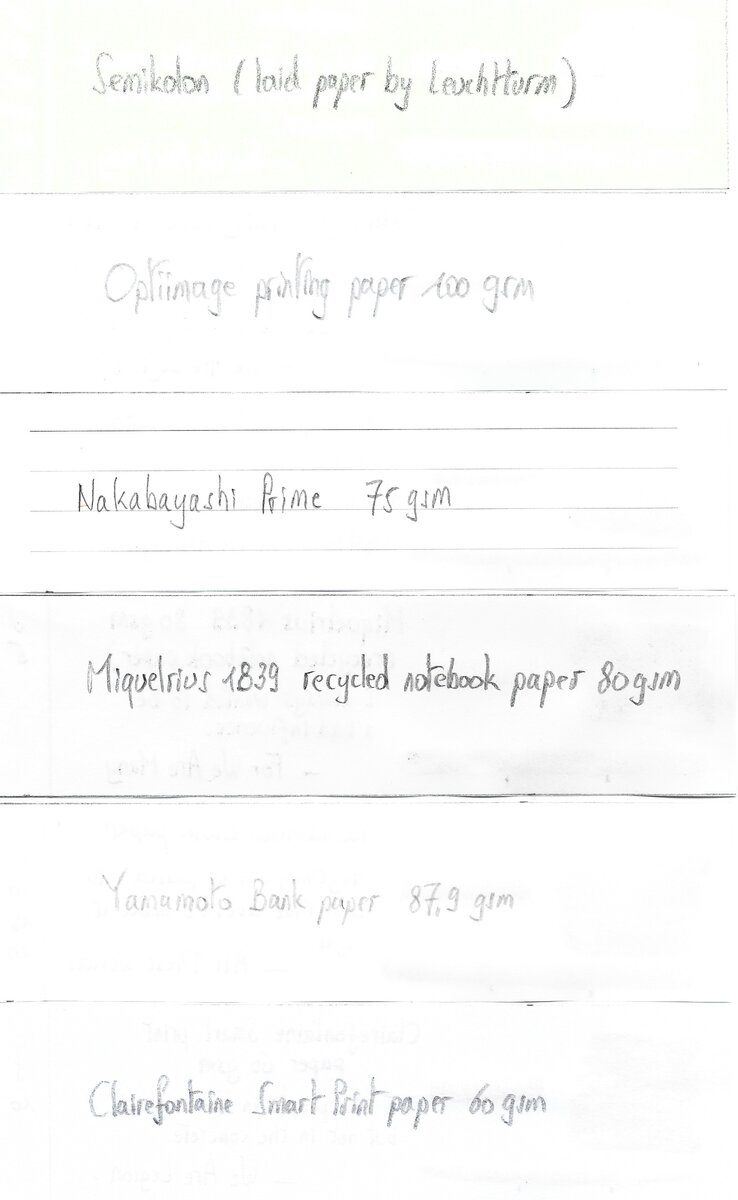 Semikolon (laid paper by Leuchtturm)
Optiimage printing paper 100 gsm
Nakabayashi Prime 75 gsm
Miquelrius 1839 recycled notebook paper 80 gsm
Yamamoto Bank paper 87,9 gsm
Clairefontaine Smart Print paper 60 gsm